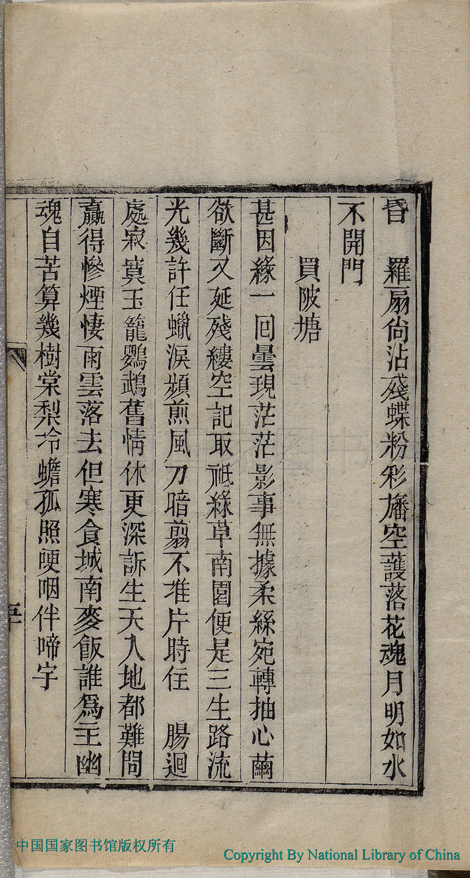 昏　羅扇尙沾殘蝶粉彩旛空護落花魂月明如水
不開門
買陂塘
甚因緣一回曇現茫茫影事無據柔絲宛轉抽心繭
欲斷又延殘縷空記取祗綠草南園便是三生路流
光幾許任蠟淚頻煎風刀暗翦不准片時住　腸迴
處寂寞玉籠鸚鵡舊情休更深訴生天入地都難問
贏得慘煙悽雨雲落去但寒食城南麥飯誰爲主幽
魂自苦算幾樹棠梨冷蟾孤照哽咽伴啼字
中国国家图书馆版权所有
Copyright By National Library of China